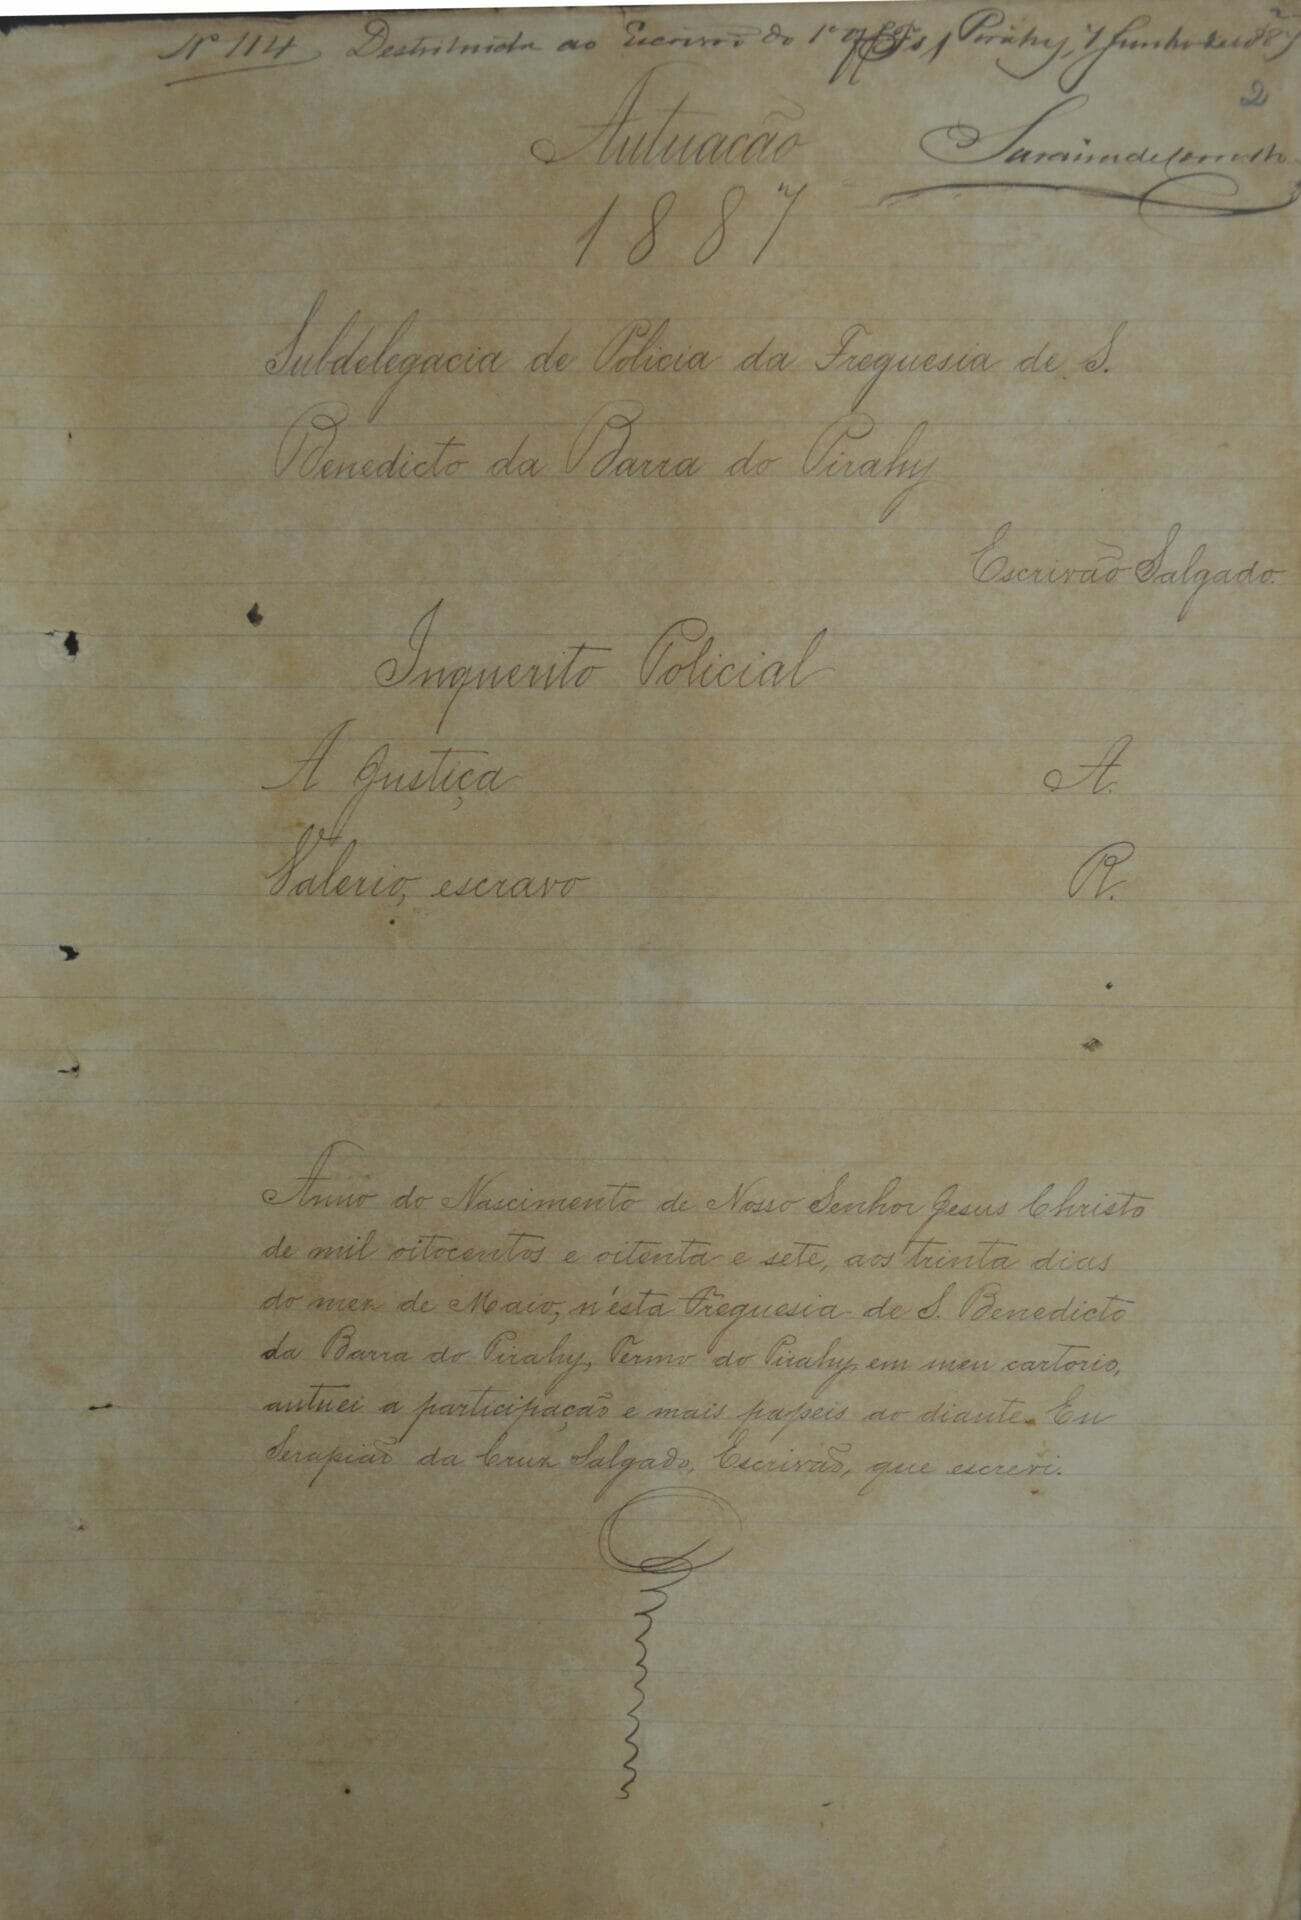 Nº 114 Destribuida ao Escrivão do 1º Pirahy, 1 Junho de 1887
2
Autuacão
1887
Subdelegacia de Policia da Freguesia de S.
Benedicto da Barra do Pirahy
Escrivão Salgado.
Inquerito Policial
A Justiça A.
Valerio, escravo R.
Anno do Nascimento de Nosso Senhor Jesus Christo
de mil oitocentos e oitenta e sete, aos trinta dias
do mez de Maio, n'esta Freguesia de S. Benedicto
da Barra do Pirahy, Termo do Pirahy, em meu cartorio,
autuei a participação e mais papeis ao diante. Eu
Serapião da Cruz Salgado, Escrivão, que escrevi.